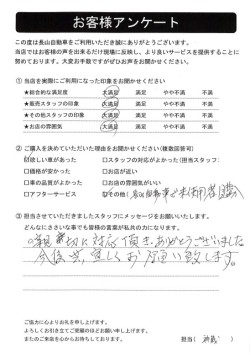 お客様アンケート
この度は長山自動車をご利用いただき誠にありがとうございます。
当店ではお客様の声を出来るだけ現場に反映し、より良いサービスを提供することに
努めております。大変お手数ですがぜひお声をお聞かせください。
① 当店を実際にご利用になった印象をお聞かせください
★総合的な満足度 大満足 満足 やや不満 不満
★販売スタッフの印象 大満足 満足 やや不満 不満
★その他スタッフの印象 大満足 満足 やや不満 不満
★お店の雰囲気 大満足 満足 やや不満 不満
② ご購入を決めていただいた理由をお聞かせください（複数回答可）
欲しい車があった □スタッフの対応がよかった（担当スタッフ:
□価格が安かった □お店が近い
□車の品質がよかった □お店の雰囲気がいい
□アフターサービス その他（
③ 担当させていただきましたスタッフにメッセージをお願いいたします。
どんなにささいな事でも皆様の言葉が私共の力になります。
親切に対応頂き、ありがとうございました
今後共、宜しくお願い致します。
ご協力に心よりお礼を申し上げます。
よろしくお引き立てご愛顧のほどお願い申し上げます。
またのご来店を心からお待ちしております。 担当（ ）